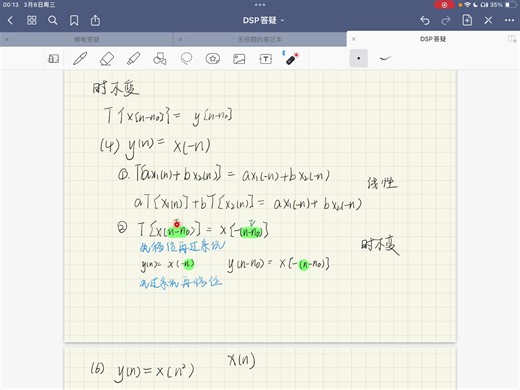 00:13 3月6日周三
35%
DSP答疑
模电答疑
无标题的笔记本
DSP答疑
时不变
T{x[n-n₀]} = y[n-n₀]
(4) y(n) = x(-n)
①. T[ax₁(n)+bx₂(n)] = ax₁(-n)+bx₂(-n)
线性
aT[x₁(n)]+bT[x₂(n)] = ax₁(-n)+bx₂(-n)
② T[x(n-n₀)] = x[-(n-n₀)]
先移位再过系统
时不变
y(n) = x(-n) y(n-n₀) = x[-(n-n₀)]
先过系统再移位
(6) y(n) = x(n²) x(n)